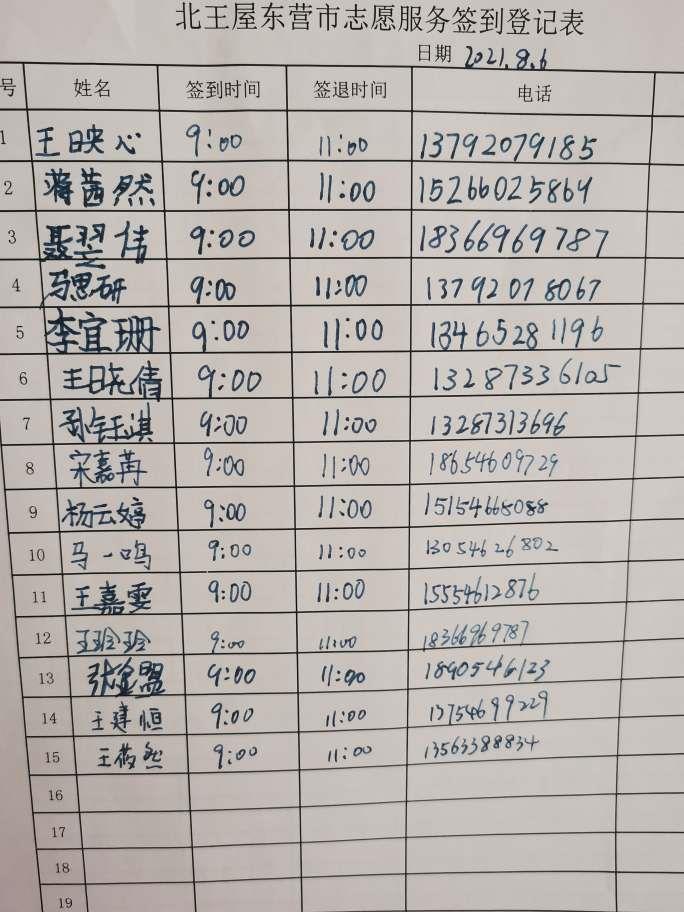 北王屋东营市志愿服务签到登记表
日期 2021.8.6
号 姓名 签到时间 签退时间 电话
1 王映心 9:00 11:00 13792079185
2 蒋茜然 9:00 11:00 15266025864
3 聂翌倩 9:00 11:00 18366969787
4 马思研 9:00 11:00 13792078067
5 李宜珊 9:00 11:00 13465281196
6 王晓倩 9:00 11:00 13287336105
7 孙钰淇 9:00 11:00 13287313696
8 宋嘉苒 9:00 11:00 18654609729
9 杨云婷 9:00 11:00 15154668088
10 马一鸣 9:00 11:00 13054626802
11 王嘉雯 9:00 11:00 15554612876
12 王玲玲 9:00 11:00 18366969787
13 张金盟 9:00 11:00 1890546123
14 王建恒 9:00 11:00 13754699229
15 王筱然 9:00 11:00 13563388834
16
17
18
19